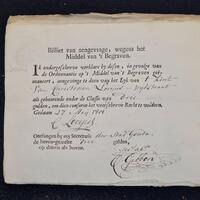 Billiet van aengevinge, wegens het
Middel van 't Begraven.
Ik ondergeschreven verklare by desen, in gevolge van
de Ordonnantie op 't Middel van 't Begraven ge-
emaneert, aengevinge te doen van het Lyk van 't Kint
Van Christiaan
als gehoorende onder de Classe van Drie
gulden, om dien conform het voorschreven Recht te voldoen.
Gedaan 27 May 1801
Ontfangen by my Secretaris der Stad Gouda
de boven-gemelde drie gl.
op datum als boven.